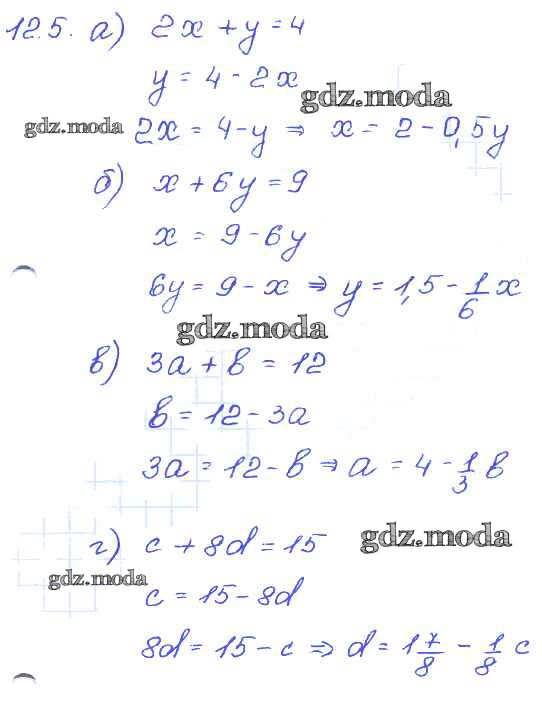 12.5. а) 2x + y = 4
y = 4 - 2x
gdz.moda
gdz.moda
2x = 4 - y ⇒ x = 2 - 0,5y
б) x + 6y = 9
x = 9 - 6y
6y = 9 - x ⇒ y = 1,5 - 1/6 x
gdz.moda
в) 3a + b = 12
b = 12 - 3a
3a = 12 - b ⇒ a = 4 - 1/3 b
г) c + 8d = 15
gdz.moda
gdz.moda
c = 15 - 8d
8d = 15 - c ⇒ d = 1 7/8 - 1/8 c